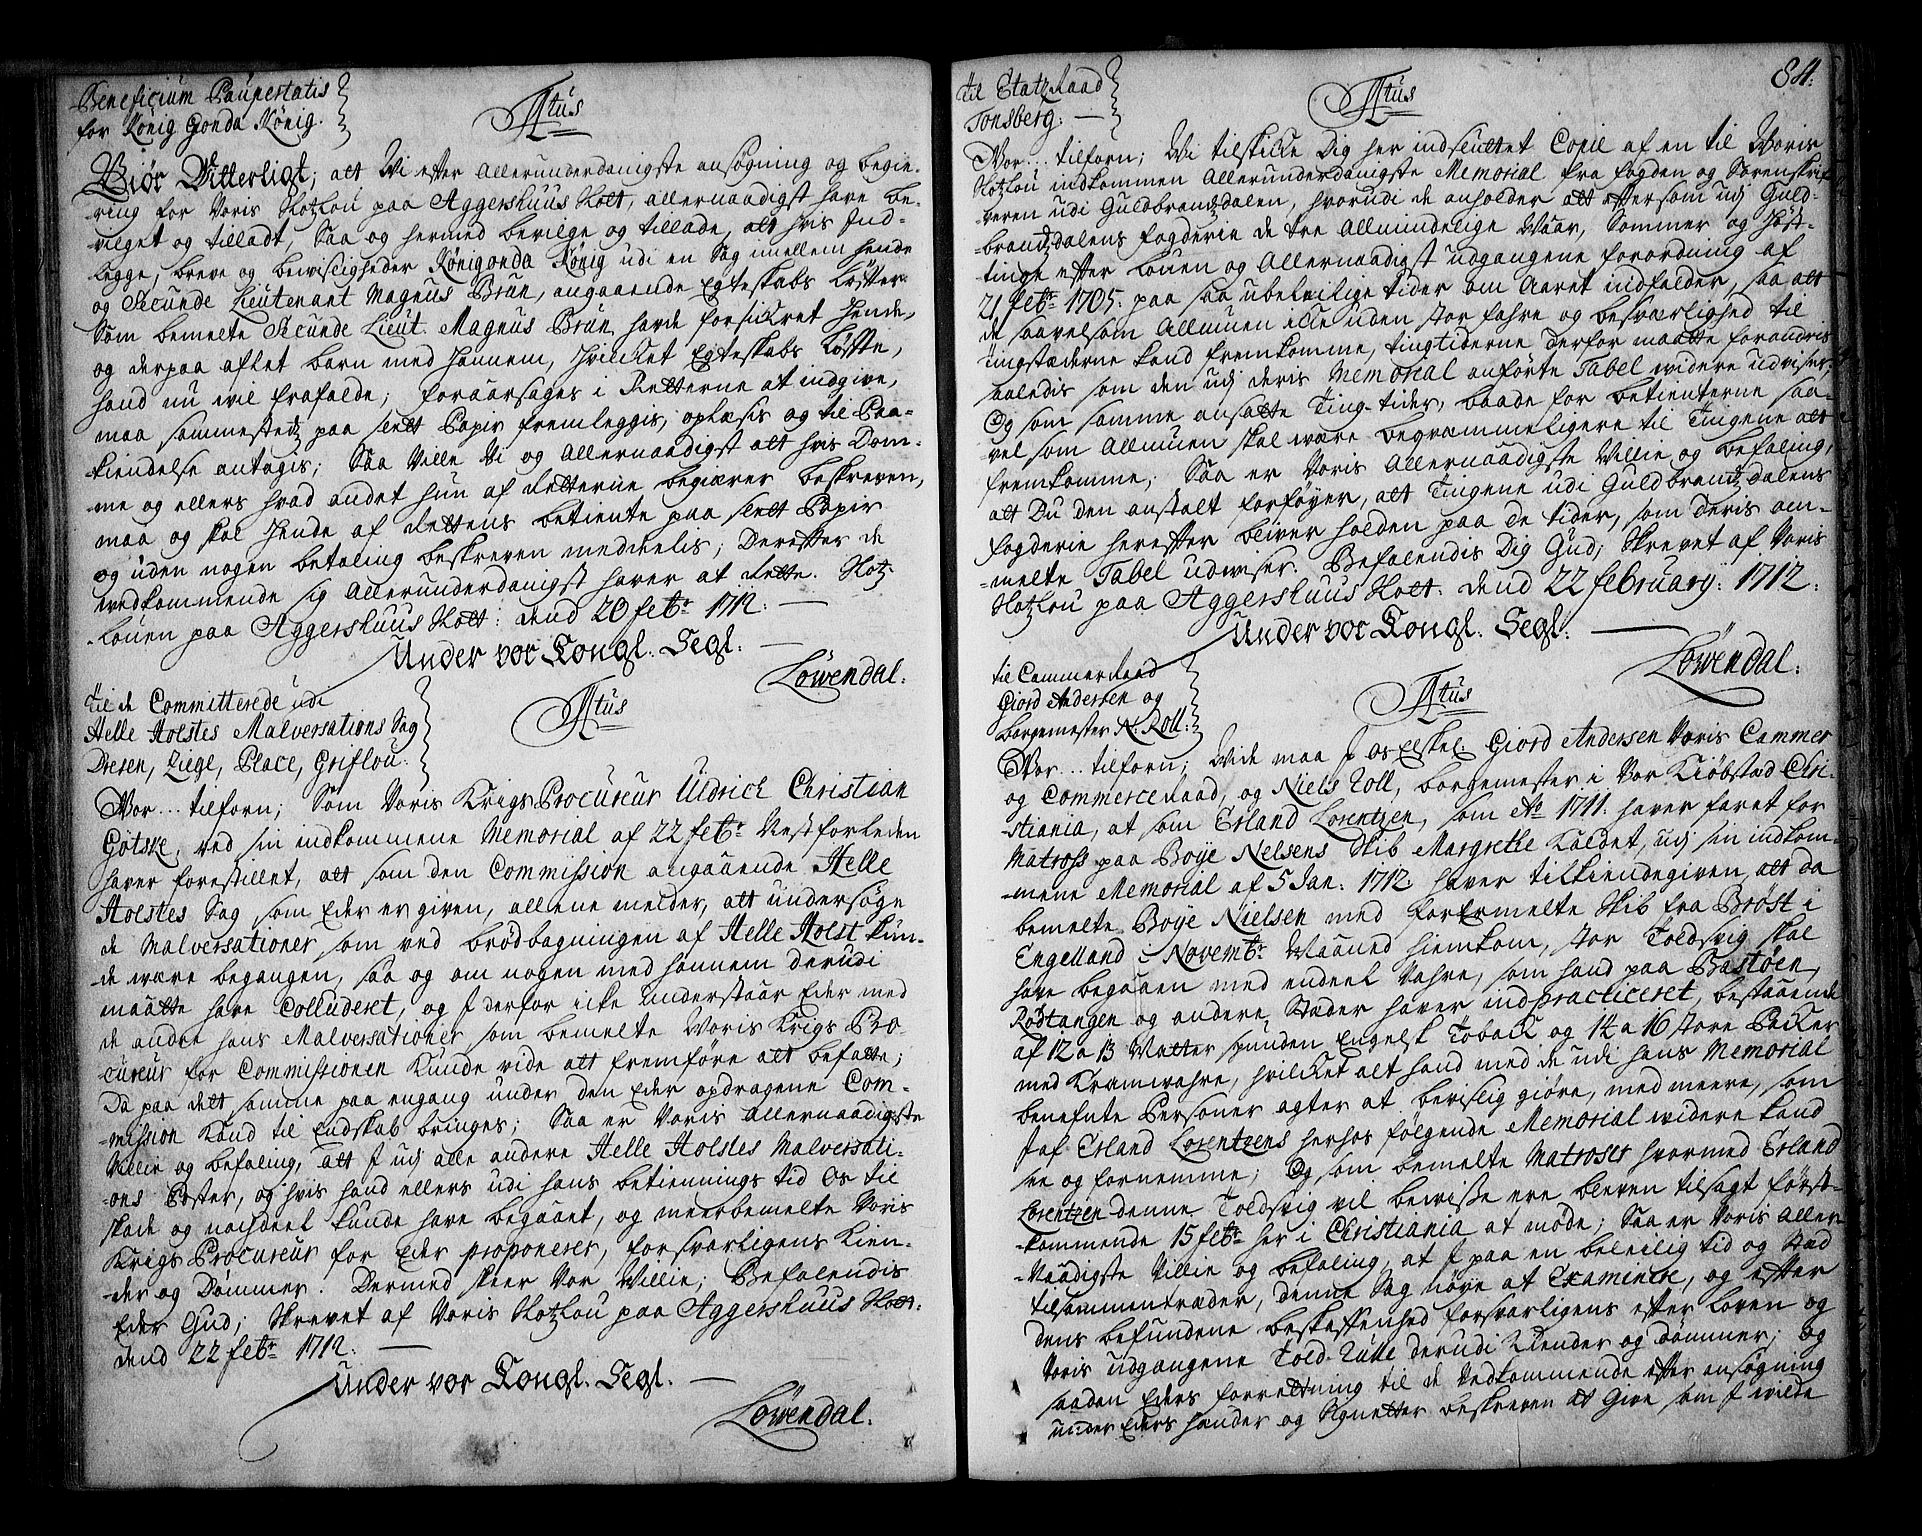 Beneficium Paupertatis
for König Gonda König.
Ftus
Giör Vitterligt; att Vi efter Allerunderdanigste ansögning og begie-
ring for Voris Slotzlou paa Aggershuus Slott, allernaadigst have be-
vilget og tilladt, Saa og hermed bevilge og tillade, att hvis Ind-
legge, breve og bewisligheder Königonda König udi en Sag imellem hende
og Secunde Lieutenant Magnus Brun, angaaende Egteskabs Löfter
Som bemelte Secunde Lieut. Magnus Brun, hafde forsickret Hende,
og derpaa aflet barn med hannem, hvilcket Egteskabs Löffte,
hand nu vil frafalde; foraarsages i Retterne at indgive,
maa sammestedz paa slett Papir fremleggis, oplæsis og til Paa-
kiendelse antagis; Saa Ville Vi og Allernaadigst att hvis Dom-
me og ellers hvad andet hun af Retterne begiærer beskreven,
maa og skal Hende af Rettens betiente paa slett Papir
og uden nogen betaling beskreven meddeelis; Derefter de
vedkommende sig Allerunderdanigst haver at Rette. Slotz
Louen paa Aggershuus Slott: dend 20 febr: 1712.
Under vor Kongl. Segl.
Löwendal.
Til de Committerede udi
Helle Holstes Malversations Sag
Dresen, Ziege, Place, Griflou.
Ftus
Vor... tilforn; Som Voris Krigs Procureur Uldrich Christian
Götske, ved sin indkommene Memorial af 22 febr: Nestforleden
haver forestillet, att som den Commission angaaende Helle
Holstes Sag som Eder er given, allene melder, att undersöge
de Malversationer, som ved brödbagningen af Helle Holst kun-
de være begangen, saa og om nogen med hannem derudi
maatte have Colluderet, og I derfor icke Understaar Eder med
de andre hans Malversationer som bemelte Voris Krigs Pro-
cureur for Commissionen kunde vide att fremföre att befatte;
Da paa dett samme paa engang under den Eder opdragene Com-
mission kand til Endskab bringes; Saa er Voris allernaadigste
Villie og befaling, att I udj alle andere Helle Holstes Malversati-
ons Poster, og hvis hand ellers udi hans betiennings tid Os til
skade og nachdeel kunde have begaaet, og meerbemelte Voris
Krigs Procureur for Eder proponerer, forsvarligens kien-
der og Dömmer. Dermed skeer Vor Villie; Befalendis
Eder Gud; Skrevet af Voris Slotzlou paa Aggershuus Slott:
dend 22 febr: 1712.
Under vor Kongl. Segl.
Löwendal.
84.
til Etatz Raad
Tonsberg.
Ftus
Vor... tilforn; Vi tilskicke Dig her indsluttet Copie af en til Voris
Slotzlou indkommen Allerunderdanigste Memorial fra fogden og Sorenskrif-
veren udi Guldbrandzdalen, hvorudi de anholder att eftersom udj Guld-
brandzdalens fogderie de tre Allmindelige Vaar, Sommer og Höst-
tinge efter Louen og Allernaadigst udgangene forordning af
21 febr: 1705. paa saa ubeleilige tider om Aaret indfalder, saa att
de saavelsom Allmuen icke uden stor fahre og besværlighed til
tingstæderne kand fremkomme, tingtiderne derfor maatte forandris
saaledis som den udj deris Memorial anförte Tabel widere udviser,
Og som samme ansatte Ting-tider, baade for betienterne saa-
vel som Allmuen skal være begvæmmeligere til Tingene att
fremkomme; Saa er Voris Allernaadigste Villie og befaling,
att Du den anstalt forföyer, att Tingene udi Guldbrandzdalens
fogderie herefter bliver holden paa de tider, som deris om-
melte Tabel udwiser. Befalendis Dig Gud; Skrevet af Voris
Slotzlou paa Aggershuus Slott. dend 22 february: 1712.
Under vor Kongl. Segl.
Löwendal.
til Cammerraad
Giord Andersen og
borgemester N: Roll:
Ftus
Vor... tilforn; Vide maa I os Elskel. Giord Andersen Voris Cammer
og Commerce Raad, og Niels Roll, borgemester i Vor Kiöbstad Chri-
stiania, at som Erland Lorentzen, som Ao 1711. haver faret for
Matross paa Boye Nelsens Skib Margrethe kaldet, udj sin indkom-
mene Memorial af 5 Jan: 1712. haver tilkiendegiven, att da
bemelte Boye Nielsen med forermelte Skib fra Bröst i
Engelland i Novembr: Maaned hiemkom, stor Toldsvig skal
have begaaen med endeel Vahre, som hand paa Bastöen,
Rödtangen og andere Stæder haver indpracticeret, bestaaende
af 12 a 13 Matter spunden Engelsk Toback og 14 a 16 store Packer
med Kramvahre, hvilcket alt hand med de udi hans Memorial
benefnte Personer agter at bevislig giöre, med meere, som
I af Erland Lorentzens herhos fölgende Memorial widere kand
see og fornemme; Og som bemelte Matroser hvormed Erland
Lorentzen denne Toldsvig vil bewiise ere bleven tilsagt först-
kommende 15 febr: her i Christiania at möde; Saa er Voris Aller-
Naadigste Villie og befaling, at I paa en beleilig tid og Stæd
tilsammentræder, denne Sag nöye at Examinere, og efter
dens befundene beskaffenhed forsvarligens efter Loven og
Voris udgangene Told-Rulle derudi Kiender og dömmer; og
saadan Eders forretning til de Vedkommende efter ansögning
under Eders hænder og Signetter beskreven at Give som I vilde